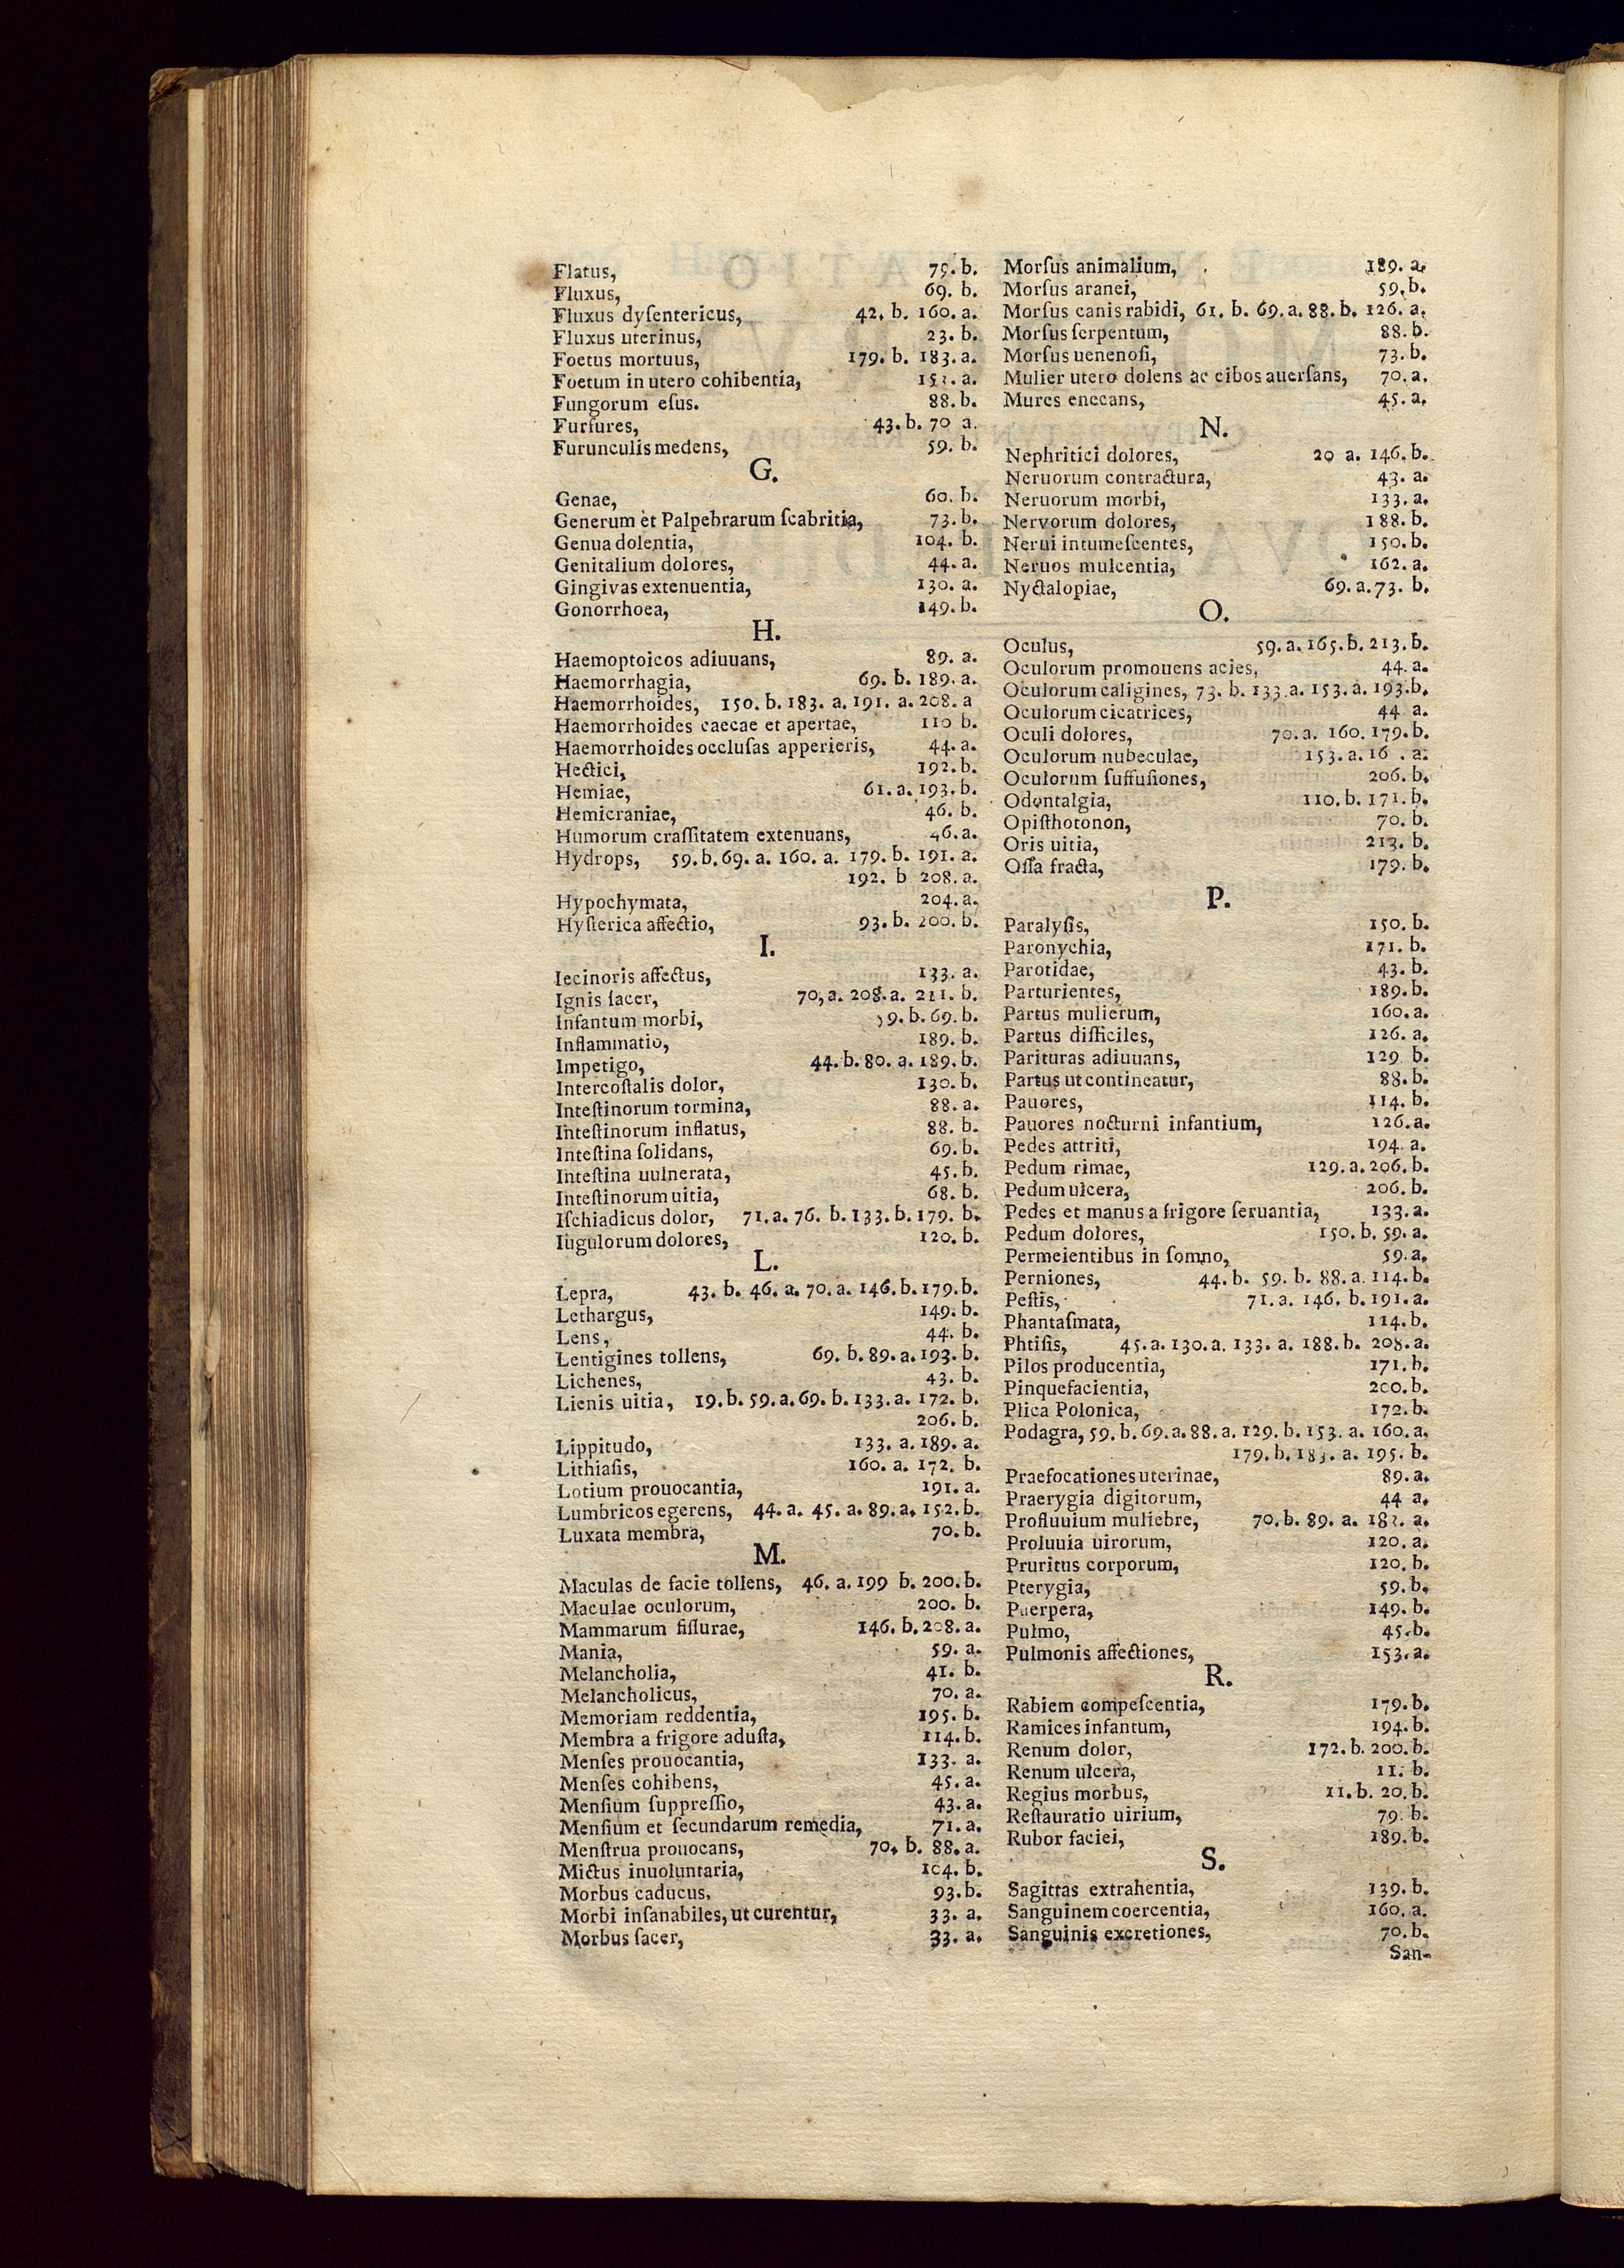 Flatus, 79. b.
Fluxus, 69. b.
Fluxus dyſentericus, 42. b. 160. a.
Fluxus uterinus, 23. b.
Foetus mortuus, 179. b. 183. a.
Foetum in utero cohibentia, a.
Fungorum eſus. 88. b.
Furfures, 43. b. 70 a.
Furunculis medens, 59. b.
G.
Genae, 60. b.
Generum et Palpebrarum ſcabritia, 73. b.
Genua dolentia, 104. b.
Genitalium dolores, 44. a.
Gingivas extenuentia, 130. a.
Gonorrhoea, 149. b.
H.
Haemoptoicos adiuuans, 89. a.
Haemorrhagia, 69. b. 189. a.
Haemorrhoides, 150. b. 183. a. 191. a. 208. a
Haemorrhoides caecae et apertae, 110 b.
Haemorrhoides occluſas apperieris, 44. a.
Hectici, 192. b.
Hemiae, 61. a. 193. b.
Hemicraniae, 46. b.
Humorum craſſitatem extenuans, 46. a.
Hydrops, 59. b. 69. a. 160. a. 179. b. 191. a.
192. b 208. a.
Hypochymata, 204. a.
Hyſterica affectio, 93. b. 200. b.
I.
Iecinoris affectus, 133. a.
Ignis ſacer, 70, a. 208. a. 211. b.
Infantum morbi, 59. b. 69. b.
Inflammatio, 189. b.
Impetigo, 44. b. 80. a. 189. b.
Intercoſtalis dolor, 130. b.
Inteſtinorum tormina, 88. a.
Inteſtinorum inflatus, 88. b.
Inteſtina ſolidans, 69. b.
Inteſtina uulnerata, 45. b.
Inteſtinorum uitia, 68. b.
Iſchiadicus dolor, 71. a. 76. b. 133. b. 179. b.
Iugulorum dolores, 120. b.
L.
Lepra, 43. b. 46. a. 70. a. 146. b. 179. b.
Lethargus, 149. b.
Lens, 44. b.
Lentigines tollens, 69. b. 89. a. 193. b.
Lichenes, 43. b.
Lienis uitia, 19. b. 59. a. 69. b. 133. a. 172. b.
206. b.
Lippitudo, 133. a. 189. a.
Lithiaſis, 160. a. 172. b.
Lotium prouocantia, 191. a.
Lumbricos egerens, 44. a. 45. a. 89. a. 152. b.
Luxata membra, 70. b.
M.
Maculas de facie tollens, 46. a. 199 b. 200. b.
Maculae oculorum, 200. b.
Mammarum fiſſurae, 146. b. 208. a.
Mania, 59. a.
Melancholia, 41. b.
Melancholicus, 70. a.
Memoriam reddentia, 195. b.
Membra a frigore aduſta, 114. b.
Menſes prouocantia, 133. a.
Menſes cohibens, 45. a.
Menſium ſuppreſſio, 43. a.
Menſium et ſecundarum remedia, 71. a.
Menſtrua prouocans, 70. b. 88. a.
Mictus inuoluntaria, 104. b.
Morbus caducus, 93. b.
Morbi inſanabiles, ut curentur, 33. a.
Morbus ſacer, 33. a.
Morſus animalium, 189. a.
Morſus aranei, 59. b.
Morſus canis rabidi, 61. b. 69. a. 88. b. 126. a.
Morſus ſerpentum, 88. b.
Morſus uenenoſi, 73. b.
Mulier utero dolens ac cibos auerſans, 70. a.
Mures enecans, 45. a.
N.
Nephritici dolores, 20 a. 146. b.
Neruorum contractura, 43. a.
Neruorum morbi, 133. a.
Nervorum dolores, 188. b.
Nerui intumeſcentes, 150. b.
Neruos mulcentia, 162. a.
Nyctalopiae, 69. a. 73. b.
O.
Oculus, 59. a. 165. b. 213. b.
Oculorum promouens acies, 44. a.
Oculorum caligines, 73. b. 133. a. 153. a. 193. b.
Oculorum cicatrices, 44. a.
Oculi dolores, 70. a. 160. 179. b.
Oculorum nubeculae, 153. a. 16 . a.
Oculorum ſuffuſiones, 206. b.
Odontalgia, 110. b. 171. b.
Opiſthotonon, 70. b.
Oris uitia, 213. b.
Oſſa fracta, 179. b.
P.
Paralyſis, 150. b.
Paronychia, 171. b.
Parotidae, 43. b.
Parturientes, 189. b.
Partus mulierum, 160. a.
Partus difficiles, 126. a.
Parituras adiuuans, 129 b.
Partus ut contineatur, 88. b.
Pauores, 114. b.
Pauores nocturni infantium, 126. a.
Pedes attriti, 194. a.
Pedum rimae, 129. a. 206. b.
Pedum ulcera, 206. b.
Pedes et manus a frigore ſeruantia, 133. a.
Pedum dolores, 150. b. 59. a.
Permeientibus in ſomno, 59. a.
Perniones, 44. b. 59. b. 88. a. 114. b.
Peſtis, 71. a. 146. b. 191. a.
Phantaſmata, 114. b.
Phtiſis, 45. a. 130. a. 133. a. 188. b. 208. a.
Pilos producentia, 171. b.
Pinquefacientia, 200. b.
Plica Polonica, 172. b.
Podagra, 59. b. 69. a. 88. a. 129. b. 153. a. 160. a.
179. b. 183. a. 195. b.
Praefocationes uterinae, 89. a.
Praerygia digitorum, 44 a.
Profluuium muliebre, 70. b. 89. a. a.
Proluuia uirorum, 120. a.
Pruritus corporum, 120. b.
Pterygia, 59. b.
Puerpera, 149. b.
Pulmo, 45. b.
Pulmonis affectiones, 153. a.
R.
Rabiem compeſcentia, 179. b.
Ramices infantum, 194. b.
Renum dolor, 172. b. 200. b.
Renum ulcera, 11. b.
Regius morbus, 11. b. 20. b.
Reſtauratio uirium, 79. b.
Rubor faciei, 189. b.
S.
Sagittas extrahentia, 139. b.
Sanguinem coercentia, 160. a.
Sanguinis excretiones, 70. b.
San-